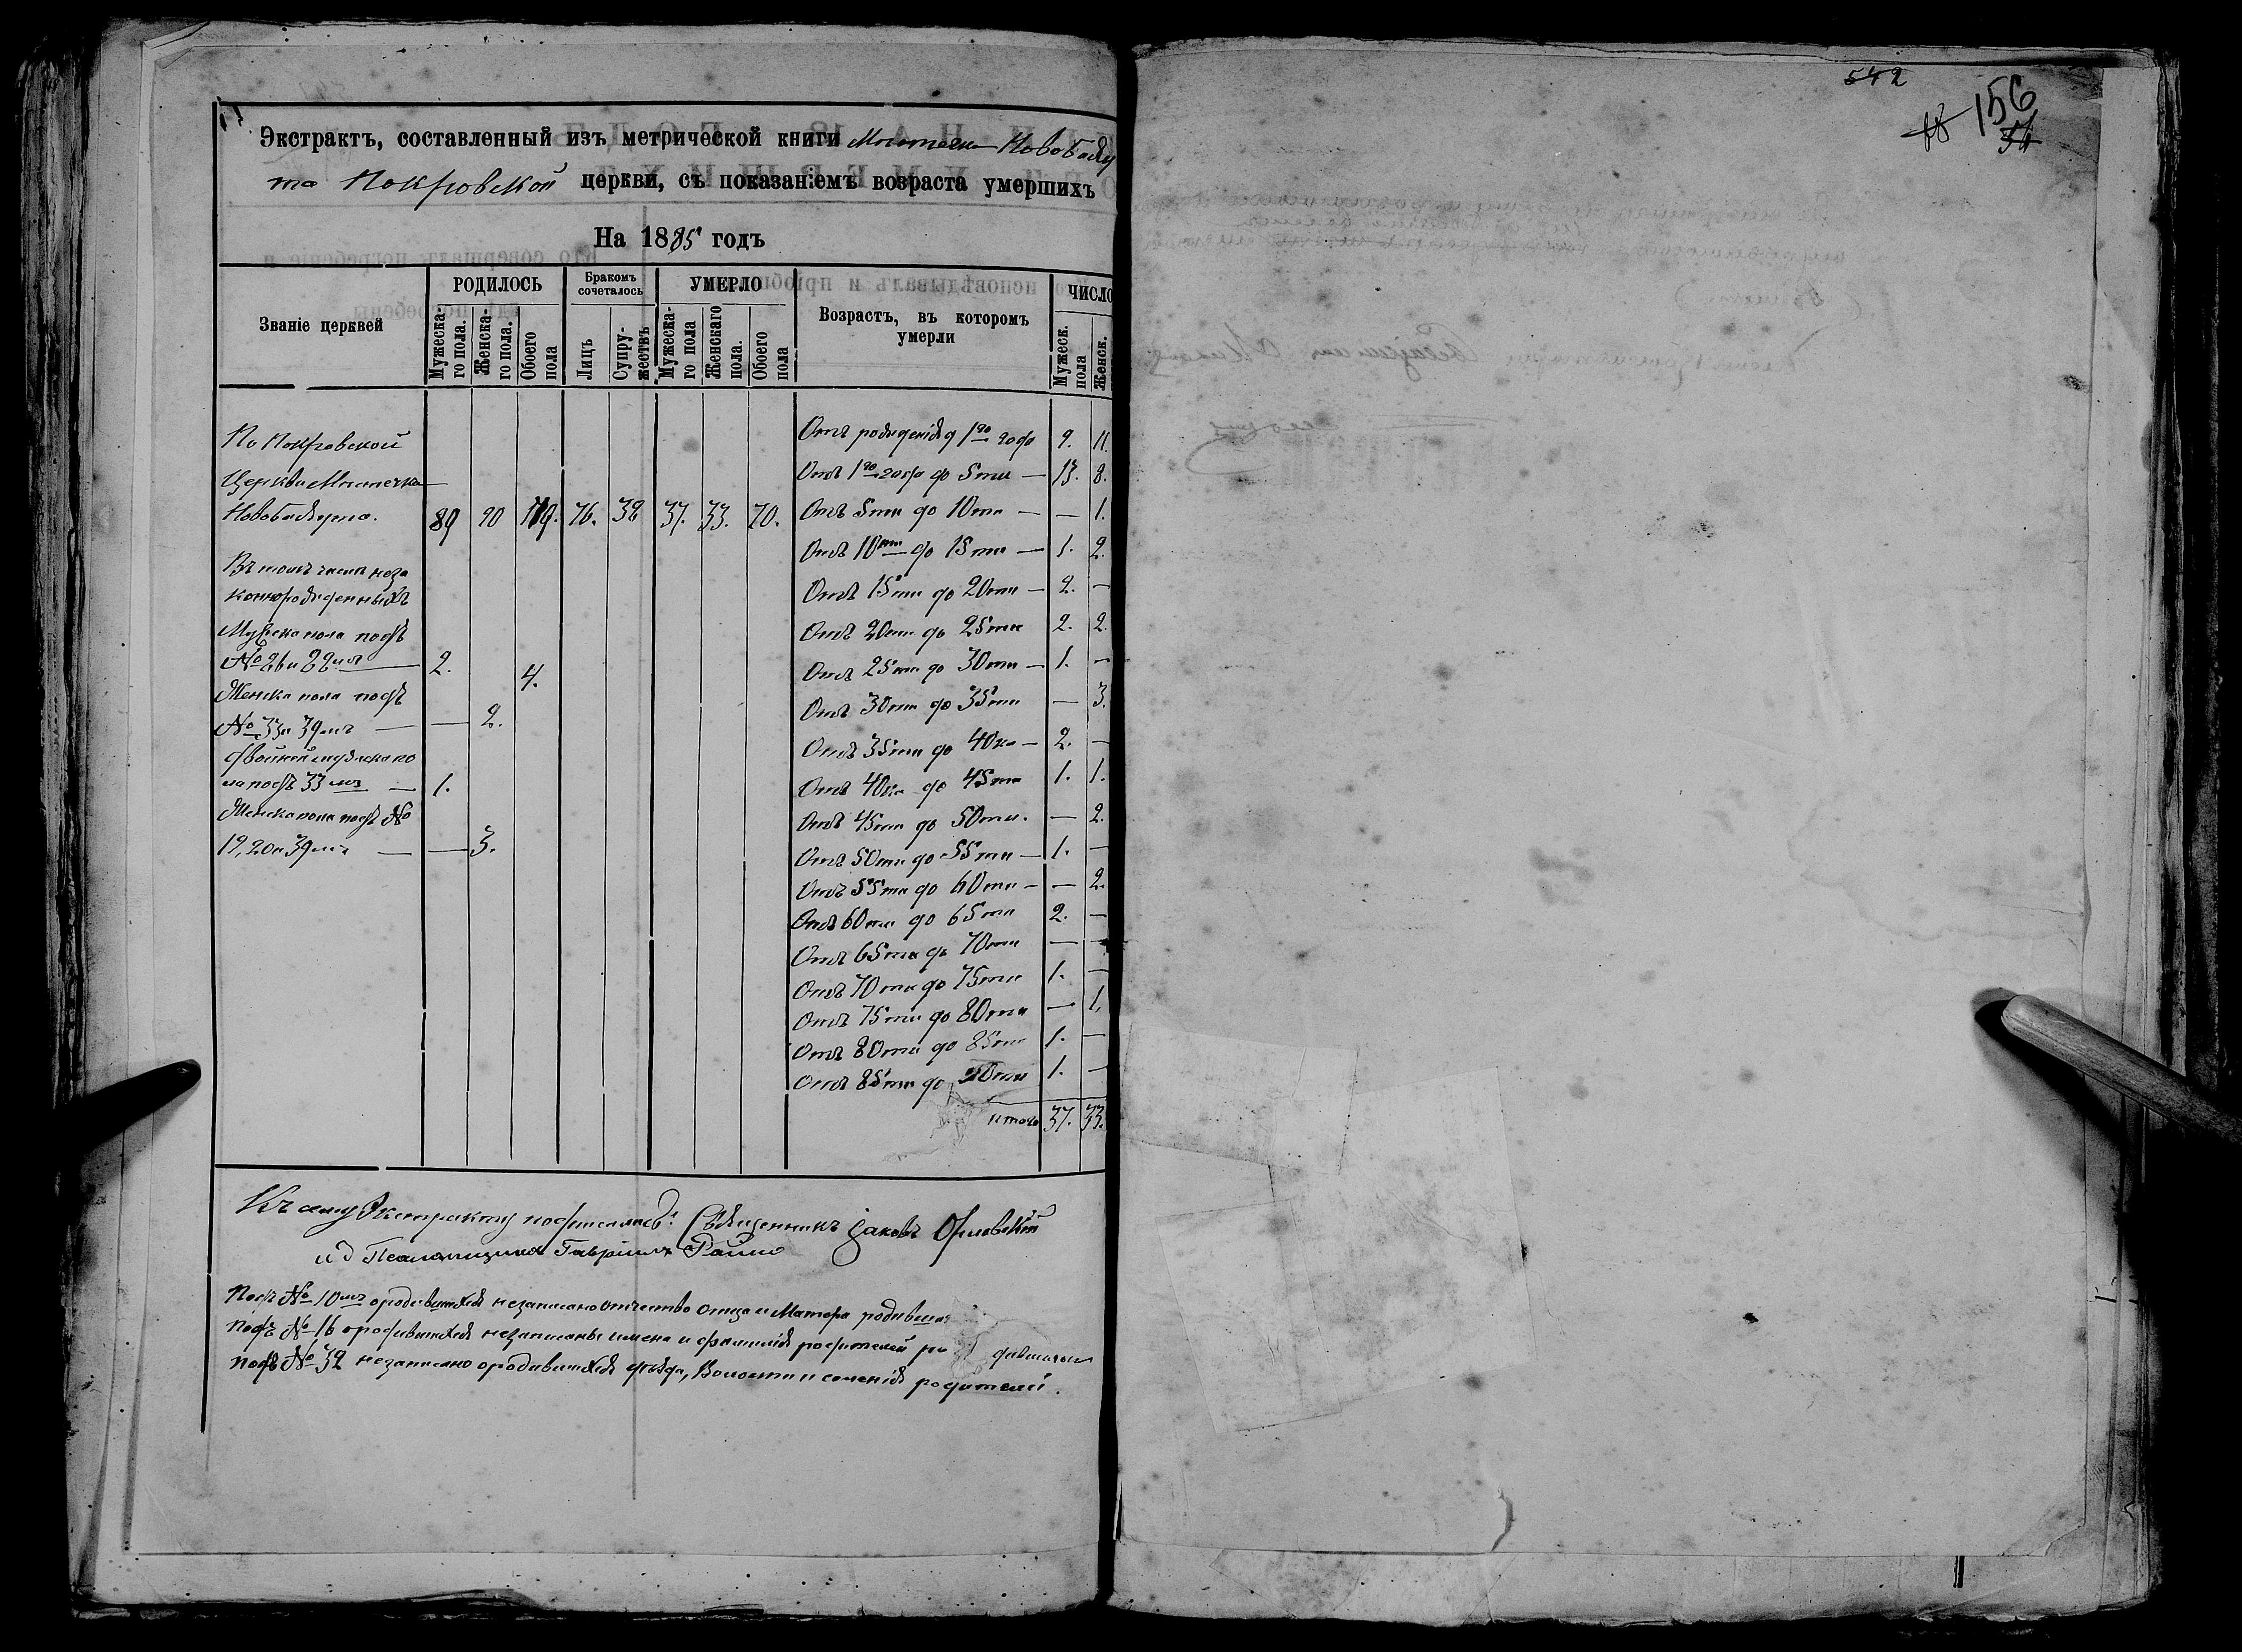 542
156
Экстрактъ, составленный изъ метрической книги Мѣстечка Новобадру
та Покровской церкви, съ показаніемъ возраста умершихъ
На 1885 годъ
Званіе церквей
РОДИЛОСЬ
Мужеска-
го пола.
Женска-
го пола.
Обоего
пола
Бракомъ
сочеталось
Лицъ
Супру-
жествъ
УМЕРЛО
Мужеска-
го пола
Женскаго
пола.
Обоего
пола
Возрастъ, въ которомъ
умерли
ЧИСЛО
Мужеск.
пола
Женск.
По Покровской
Церкви Мѣстечка
89 90 179. 76. 38 37. 33. 70.
Въ томъ числѣ неза
коннорожденныхъ
Мужска пола подъ
№ 26 и 28мъ — 2. 4.
Женска пола подъ
— — 2.
двойней мужска по
ла подъ 33мъ — 1.
Женска пола подъ №
19, 20 и 39мъ — — 3.
Отъ рожденія д 1го года 9. 11.
Отъ 1го года до 5ти — 13. 8.
Отъ 5ти до 10ти — — 1.
Отъ 10ти до 15ти — 1. 2.
Отъ 15ти до 20ти — 2. —
Отъ 20ти до 25ти 2. 2.
Отъ 25ти до 30ти — 1. —
Отъ 30ти до 35ти — 3.
Отъ 35ти до 40ка — 2. —
Отъ 40ка до 45ти 1. 1.
Отъ 45ти до 50ти. — 2.
Отъ 50ти до 55ти — 1. —
Отъ 55ти до 60ти — — 2.
Отъ 60ти до 65ти 2. —
Отъ 65ти до 70ти — —
Отъ 70ти до 75ти 1. —
Отъ 75ти до 80ти — 1.
Отъ 80ти до 85ти 1. —
Отъ 85ти до 90ти 1. —
итого 37. 33.
Къ сему Экстракту подписались: Священникъ Іаковъ Орловскій
и д Псаломщика Гавріилъ
Подъ № 10мъ о родившихся незаписано отчество отца и Матери
Подъ № 16 о родившихся незаписаны имена и фамилія родителей
Подъ № 32 незаписано о родившихся уѣзда, Волости и селенія родителей.